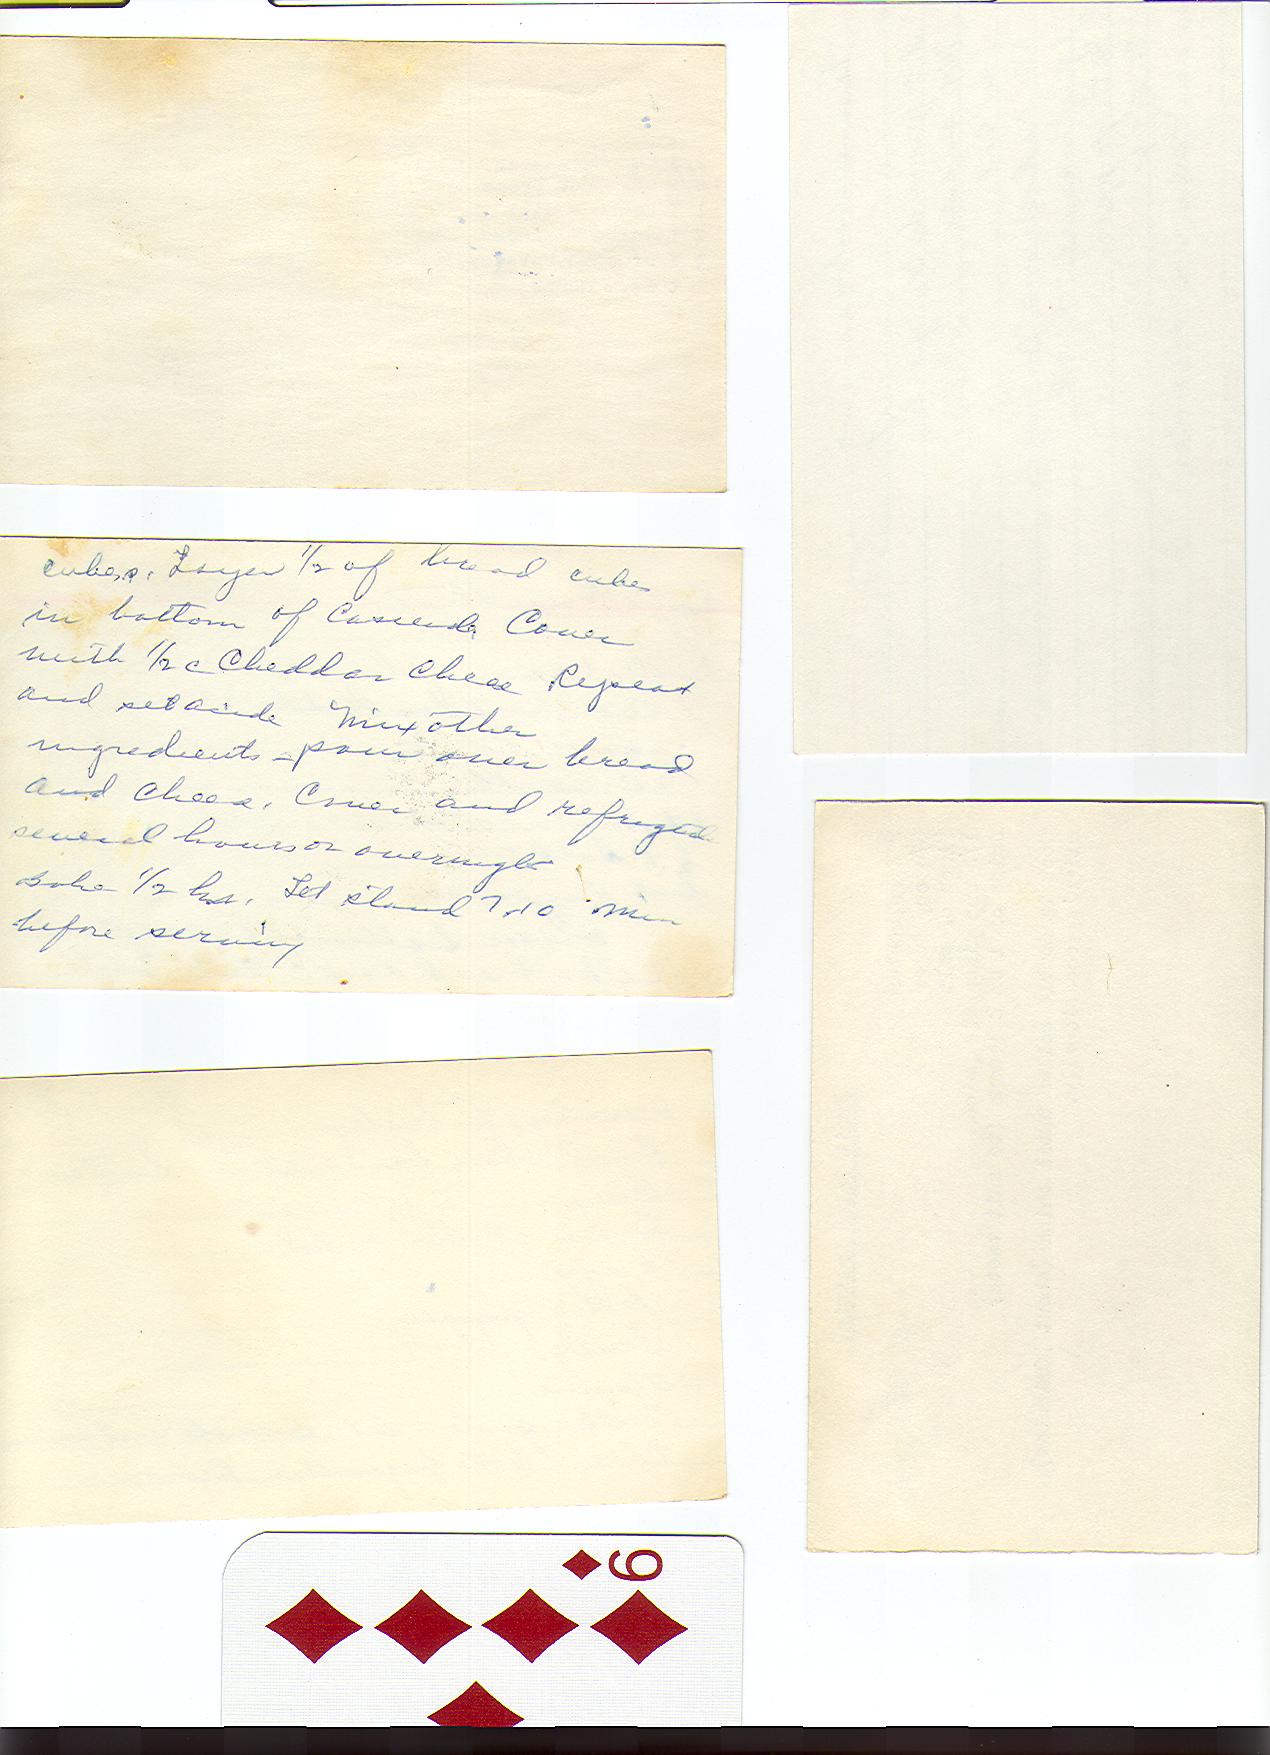 cubes. Layer 1/2 of bread cubes
in bottom of Casserole Cover
with 1/2 c Cheddar cheese Repeat
and set aside Mix other
ingredients - pour over bread
and cheese. Cover and refrigerate
several hours or overnight
bake 1/2 hr. Let stand 10 min
before serving
9